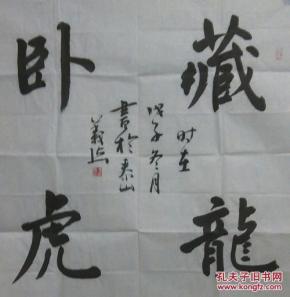 藏龍
卧虎
时在
戊子冬月
書於泰山
義然
孔夫子旧书网